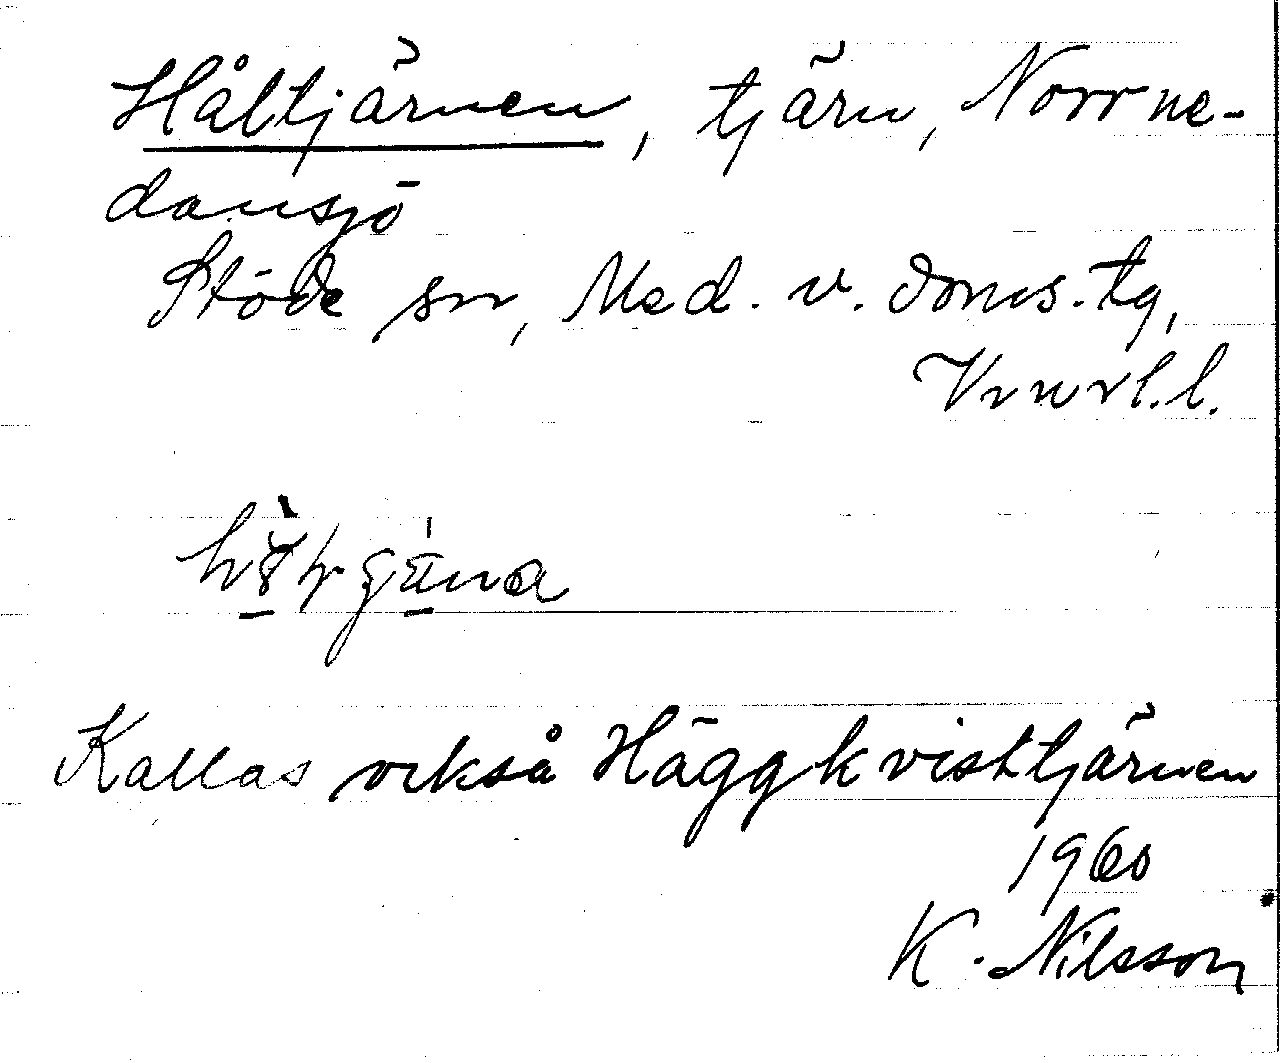 Håltjärnen, tjärn, Norrne-
dansjö
Stöde sn, Med. v. doms. tg,
Vnrl. l.
Kallas också Häggkvisttjärnen
1960
K. Nilsson